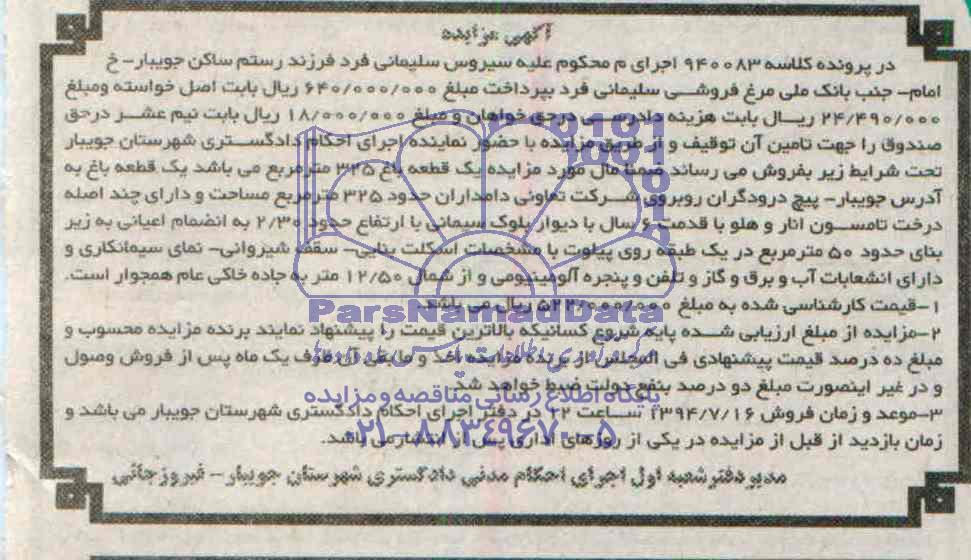 آگهی مزایده
در پرونده کلاسه ۹۴۰۰۸۳ اجرای م محکوم علیه سیروس سلیمانی فرد فرزند رستم ساکن جویبار- خ
امام- جنب بانک ملی مرغ فروشی سلیمانی فرد بپرداخت مبلغ ۶۴۰/۰۰۰/۰۰۰ ریال بابت اصل خواسته ومبلغ
۲۴/۴۹۰/۰۰۰ ریال بابت هزینه دادرسی درحق خواهان و مبلغ ۱۸/۰۰۰/۰۰۰ ریال بابت نیم عشر درحق
صندوق را جهت تامین آن توقیف و از طریق مزایده با حضور نماینده اجرای احکام دادگستری شهرستان جویبار
تحت شرایط زیر بفروش می رساند ضمنا مال مورد مزایده یک قطعه باغ ۳۲۵ مترمربع می باشد یک قطعه باغ به
آدرس جویبار- پیچ درودگران روبروی شرکت تعاونی دامداران حدود ۳۲۵ مترمربع مساحت و دارای چند اصله
درخت تامسون انار و هلو با قدمت ۶ سال با دیوار بلوک سیمانی با ارتفاع حدود ۲/۳۰ به انضمام اعیانی به زیر
بنای حدود ۵۰ مترمربع در یک طبقه روی پیلوت با مشخصات اسکلت بنایی- سقف شیروانی- نمای سیمانکاری و
دارای انشعابات آب و برق و گاز و تلفن و پنجره آلومینیومی و از شمال ۱۲/۵۰ متر به جاده خاکی عام همجوار است.
۱-قیمت کارشناسی شده به مبلغ ۵۲۲/۰۰۰/۰۰۰ ریال می باشد
۲-مزایده از مبلغ ارزیابی شده پایه شروع کسانیکه بالاترین قیمت را پیشنهاد نمایند برنده مزایده محسوب و
مبلغ ده درصد قیمت پیشنهادی فی المجلس از برنده مزایده اخذ و مابقی آن ظرف یک ماه پس از فروش وصول
و در غیر اینصورت مبلغ دو درصد بنفع دولت ضبط خواهد شد
۳-موعد و زمان فروش ۱۳۹۴/۷/۱۶ ساعت ۱۲ در دفتر اجرای احکام دادگستری شهرستان جویبار می باشد و
زمان بازدید از قبل از مزایده در یکی از روزهای اداری پس از انتشار می باشد.
مدیر دفتر شعبه اول اجرای احکام مدنی دادگستری شهرستان جویبار- فیروزجائی
ParsNamadData
پایگاه اطلاع رسانی مناقصه و مزایده
۰۲۱-۸۸۳۴۹۶۷۰-۵